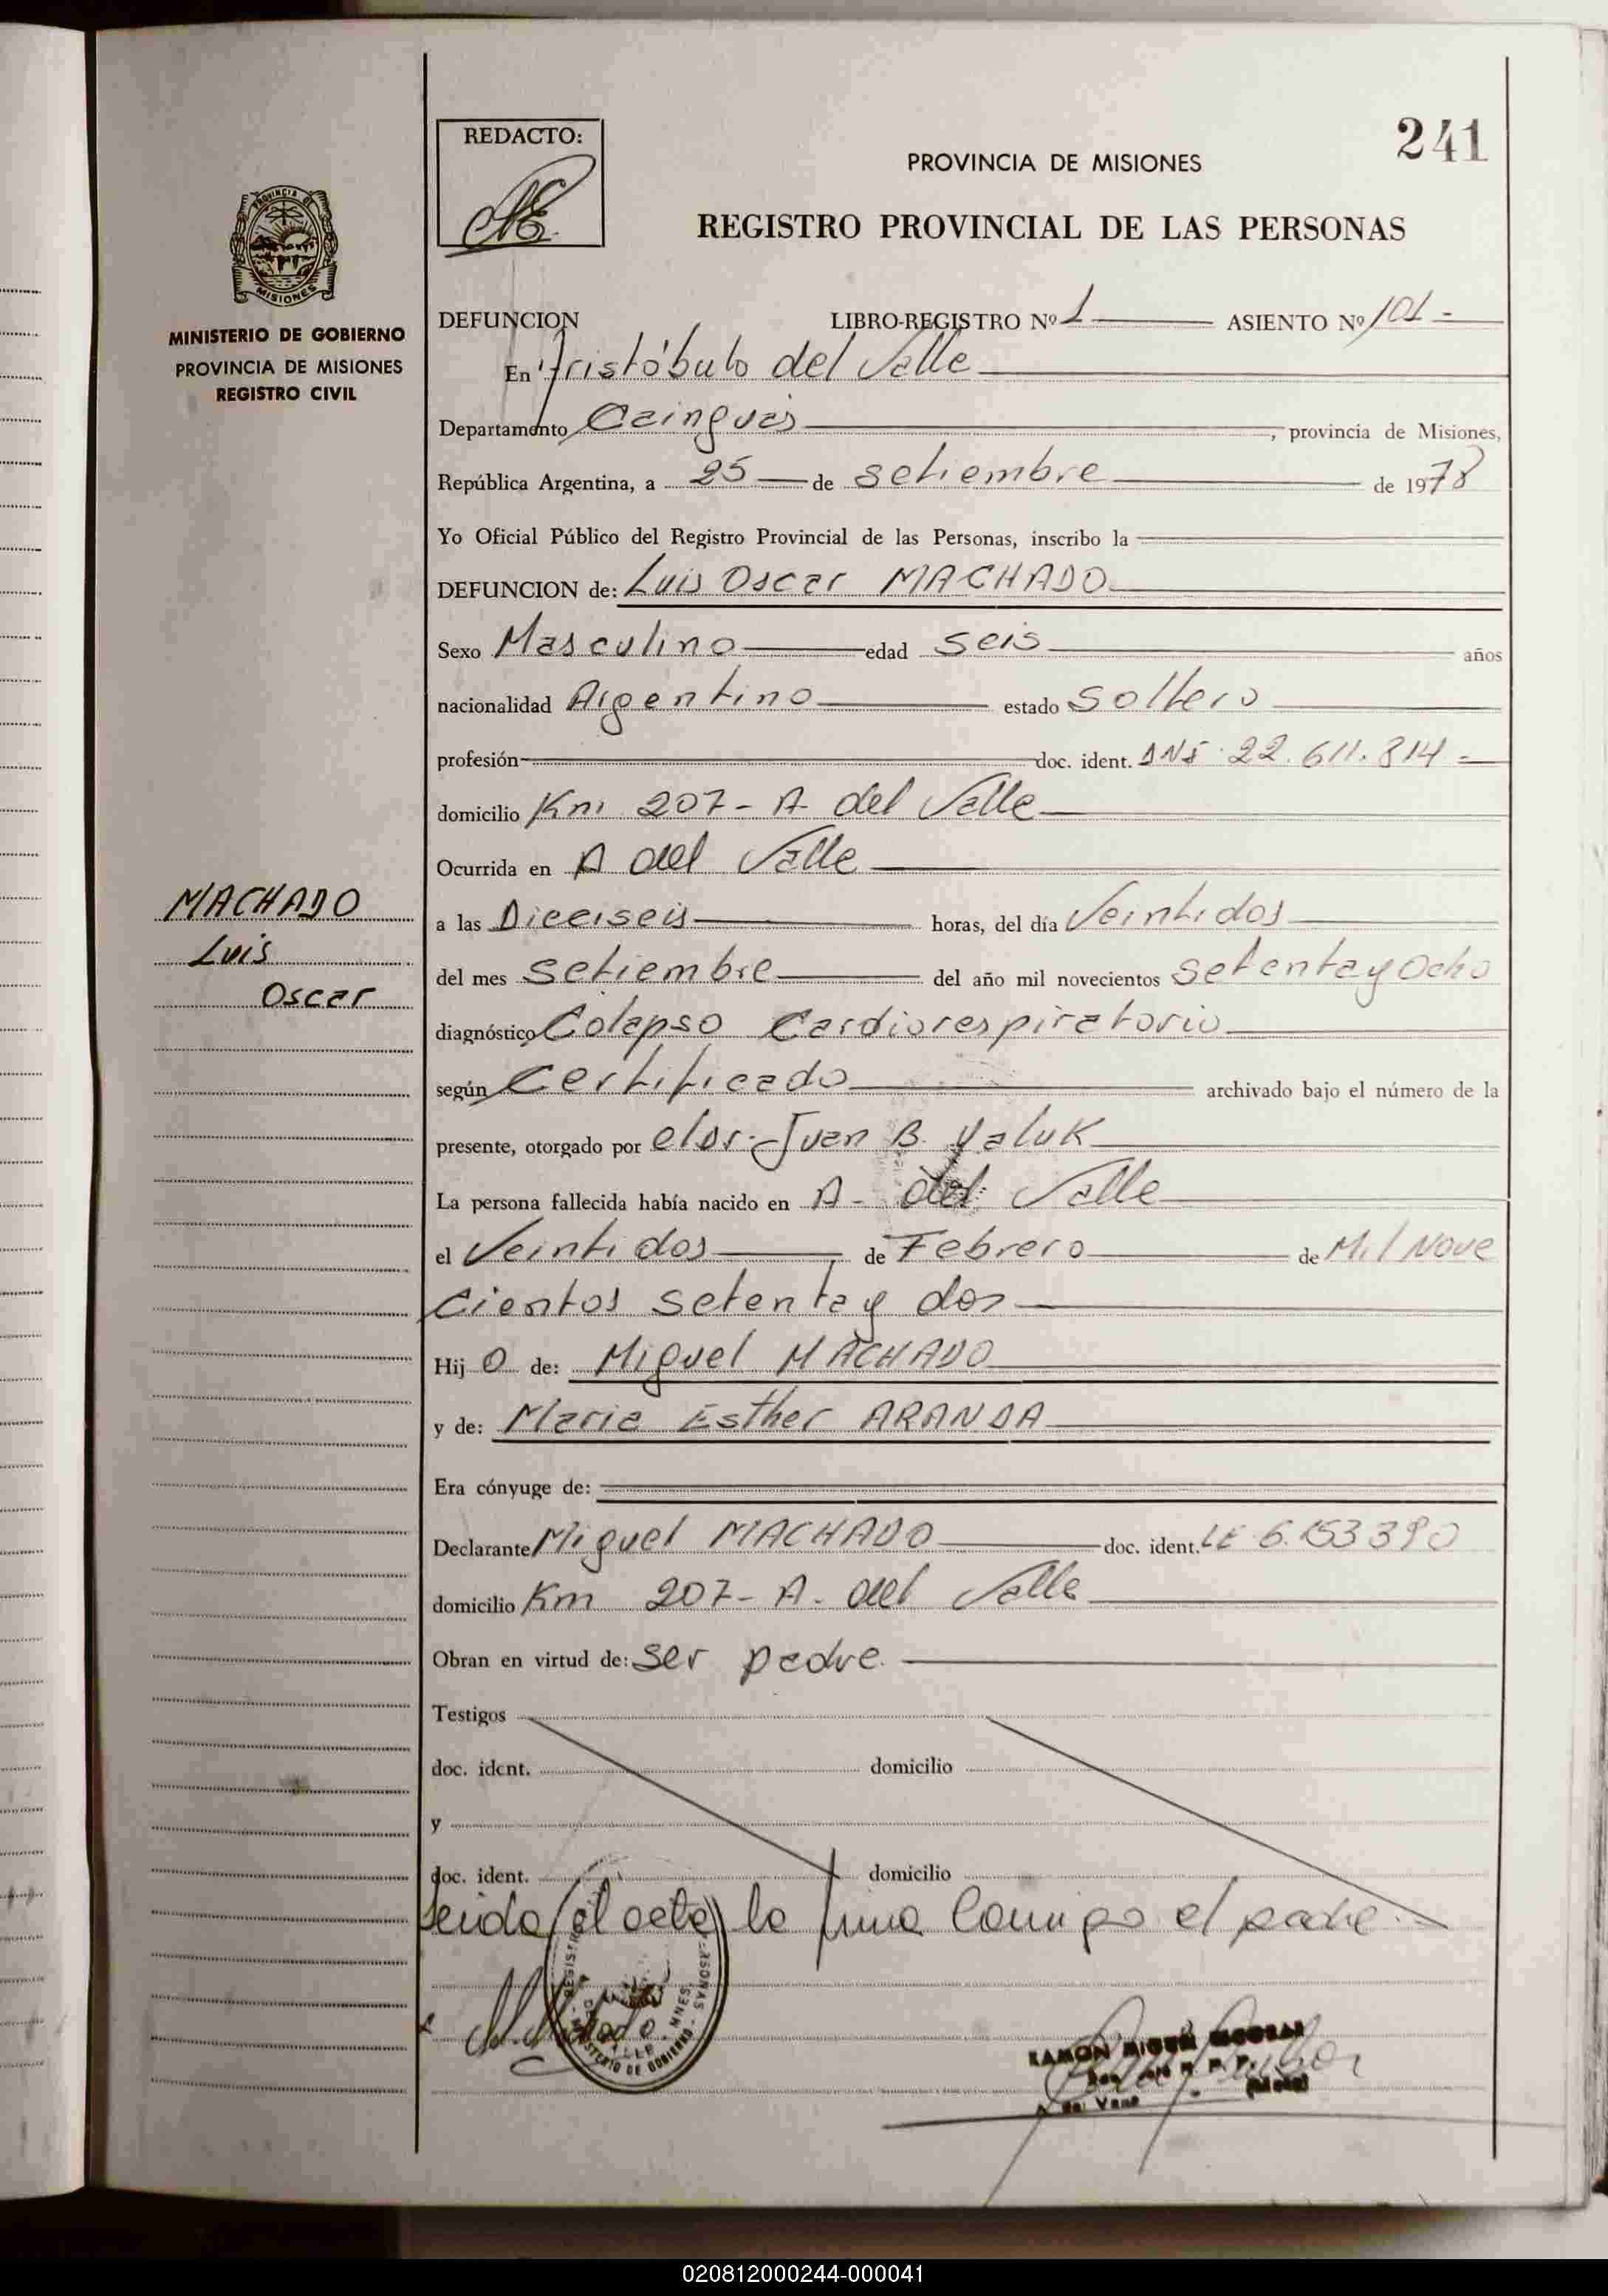 241
REDACTO:
PROVINCIA DE MISIONES
REGISTRO PROVINCIAL DE LAS PERSONAS
PROVINCIA DE
MISIONES
MINISTERIO DE GOBIERNO
PROVINCIA DE MISIONES
REGISTRO CIVIL
DEFUNCION LIBRO-REGISTRO Nº 1 ASIENTO Nº 101-
En Aristóbulo del Valle
Departamento Cainguás, provincia de Misiones,
República Argentina, a 25 de setiembre de 1978
Yo Oficial Público del Registro Provincial de las Personas, inscribo la
DEFUNCION de: Luis Oscar MACHADO
Sexo Masculino edad seis años
nacionalidad Argentino estado soltero
profesión doc. ident. DNI 22.611.814-
domicilio Km 207- A. del Valle
Ocurrida en A del Valle
MACHADO
Luis
Oscar
a las Dieciseis horas, del día Veintidos
del mes setiembre del año mil novecientos setenta y Ocho
diagnóstico Colapso Cardiorespiratorio
según Certificado archivado bajo el número de la
presente, otorgado por el Dr. Juan B. Yaluk
La persona fallecida había nacido en A- del Valle
el Veintidos de Febrero de Mil Nove
cientos setenta y dos
Hij O de: Miguel MACHADO
y de: Maria Esther ARANDA
Era cónyuge de:
Declarante Miguel MACHADO doc. ident. LE 6.153390
domicilio Km 207- A. del Valle
Obran en virtud de: ser padre.
Testigos
doc. ident. domicilio
y
doc. ident. domicilio
Leida el acta la firma conmigo el padre.
RAMON
020812000244-000041